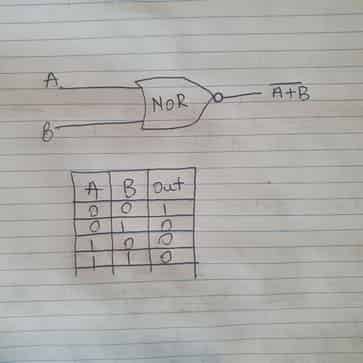 A
NOR
A+B
B
A B Out
0 0 1
0 1 0
1 0 0
1 1 0